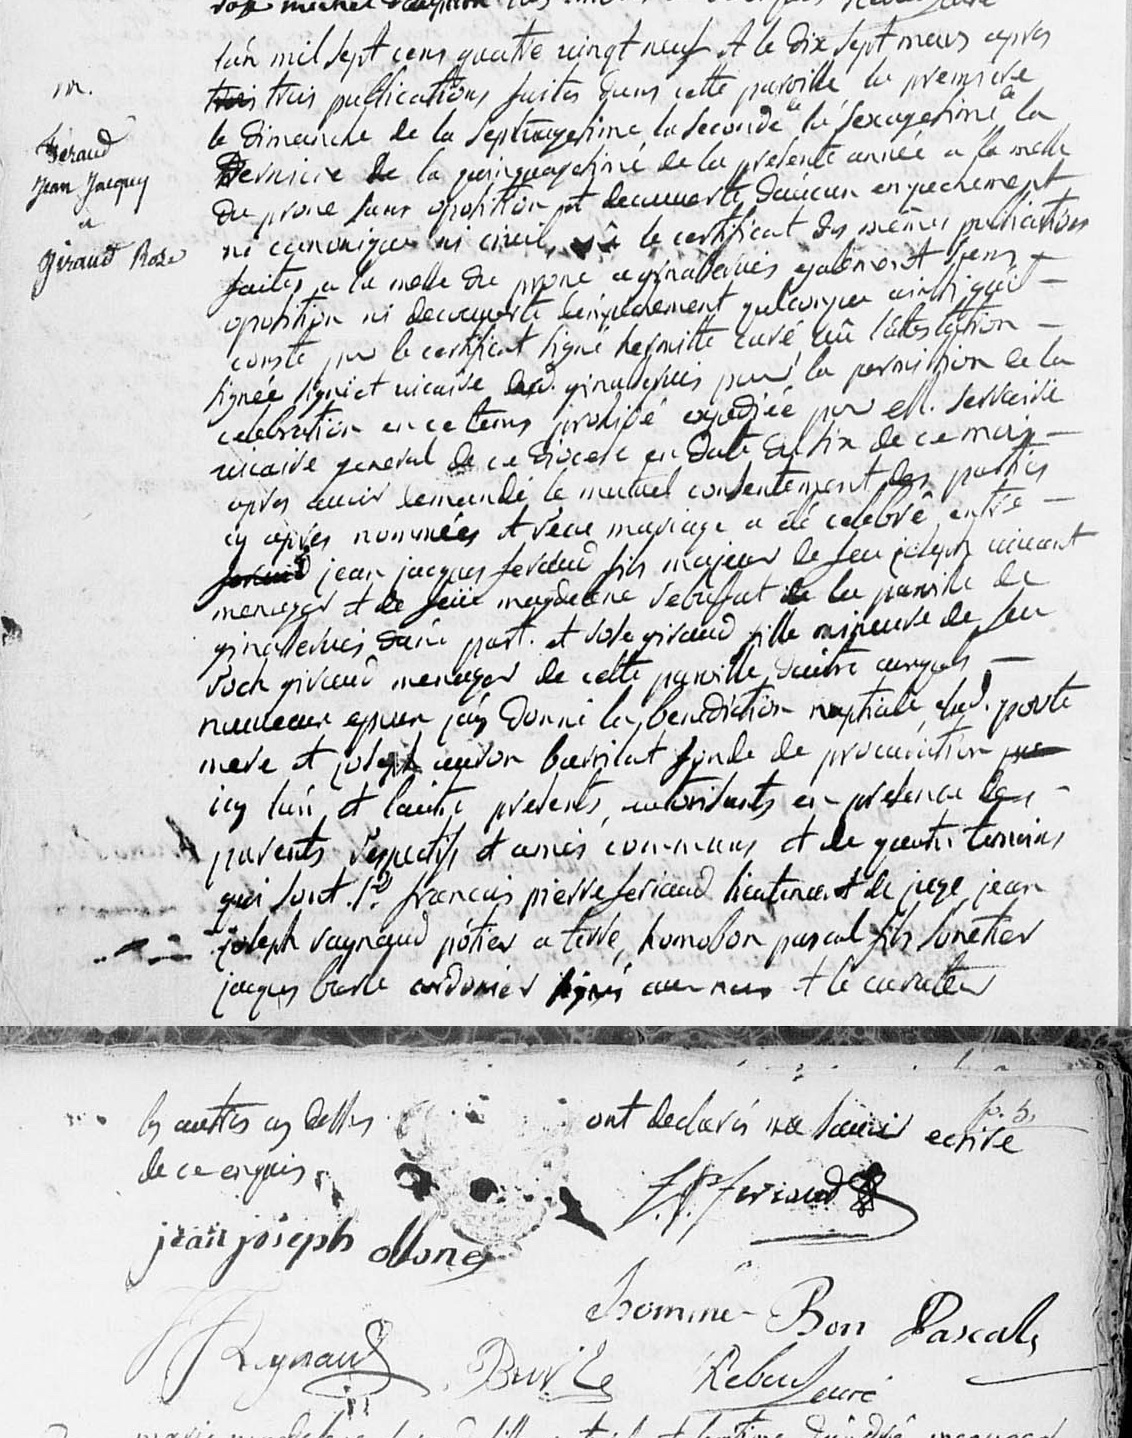 l'an mil sept cens quatre vingt neuf et le dix sept mars apres
trois publications faites dans cette paroisse la premiere
le dimanche de la septuagesime la seconde de la sexagesime la
derniere de la quinquagesime de la presente année a la messe
du prone sans oposition et decouverte d'aucun empechement
ni canonique ni civil, vû le certificat des mêmes publications
faites a la messe du prone a ginasservis egalement sens
oposition ni decouverte d'empechement quelconque ainsi quil
conste par le certificat signé hermitte curé vû l'attestation
signée vicaire dud. ginasservis pour la permission de la
celebration en ce tems prohibé expediée par M.
vicaire general de ce diocese en date du six de ce mois
apres avoir demandé le mutuel consentement des parties
cy apres nommées et reçu mariage a été celebré entre
jean jacques feraud fils majeur de feu joseph vivant
menager et de feüe magdelene rebufat de la paroisse de
ginasservis d'une part. et rose giraud fille mineure de feu
roch giraud menager de cette paroisse d'autre auxquels
nouveaux epoux j'ay donné la benediction nuptiale lad.
mere et joseph fondé de procuration
icy l'un et l'autre presents, autorisants en presence des
parents respectifs et amis communs et de quatre temoins
qui sont Sr. francois pierre feriaud lieutenant de juge, jean
joseph raynaud pôtier a terre, homobon pascal fils
jacques burle cordonier signés avec nous et le curateur
m.
féraud
Jean Jacques
a
giraud Rose
fo. 5.
les autres cy dessus ont declarés ne sçavoir ecrire
de ce enquis
f. p. feriaud
jean joseph
homme Bon Pascal
J J Reynaud Burle Rebuf curé